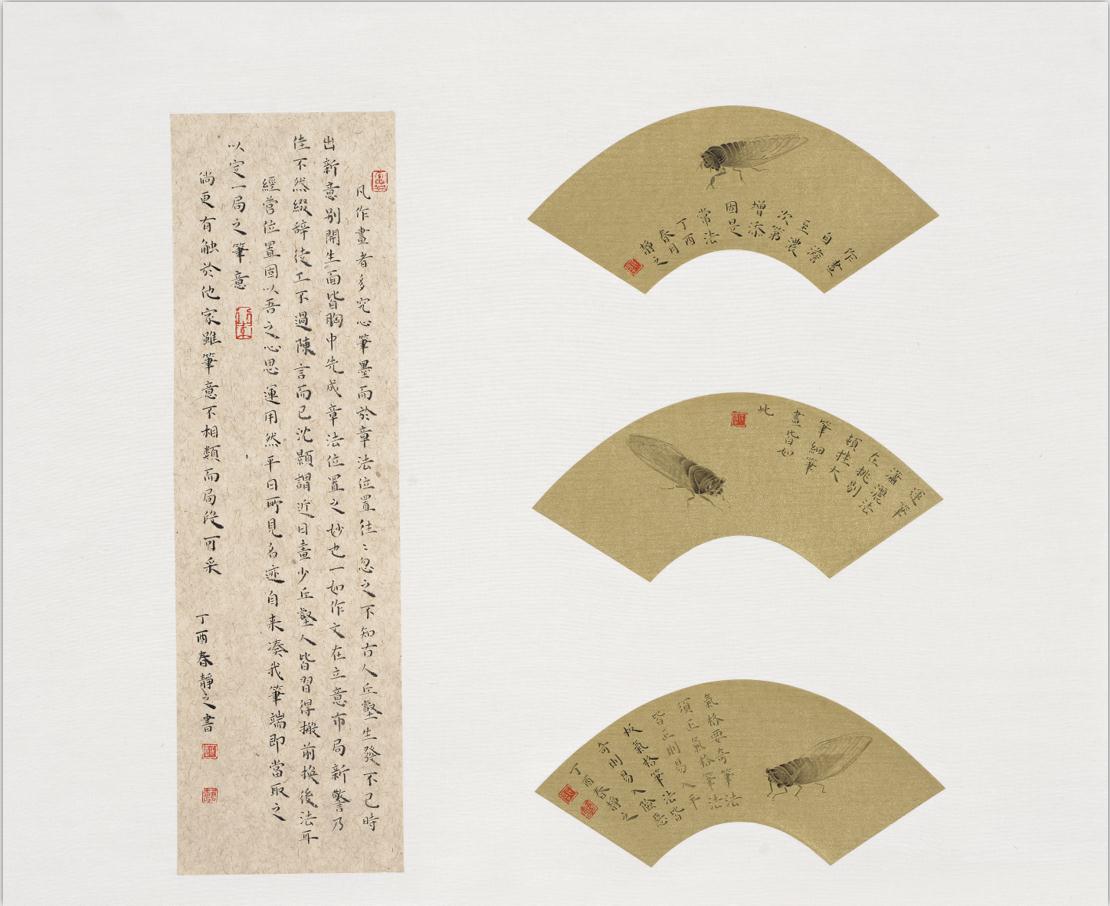 凡作畫者多究心筆墨而於章法位置往〻忽之不知古人丘壑生發不已時
出新意別開生面皆胸中先成章法位置之妙也一如作文在立意布局新警乃
佳不然綴辭徒工不過陳言而已沈顥謂近日畫少丘壑人皆習得搬前換後法耳
經營位置固以吾之心思運用然平日所見名迹自来湊我筆端即當取之
以定一局之筆意
尚更有触於他家雖筆意不相類而局段可采
丁酉春靜之書
作畫
自澹
至濃
次第
增添
固是
常法
丁酉
春月
靜之
運筆
瀟灑法
在挑剔
頓挫大
筆細筆
畫皆如
此
氣格要奇筆法
須正氣格筆法
皆正則易入平
板氣格筆法皆
奇則易入險惡
丁酉春靜之